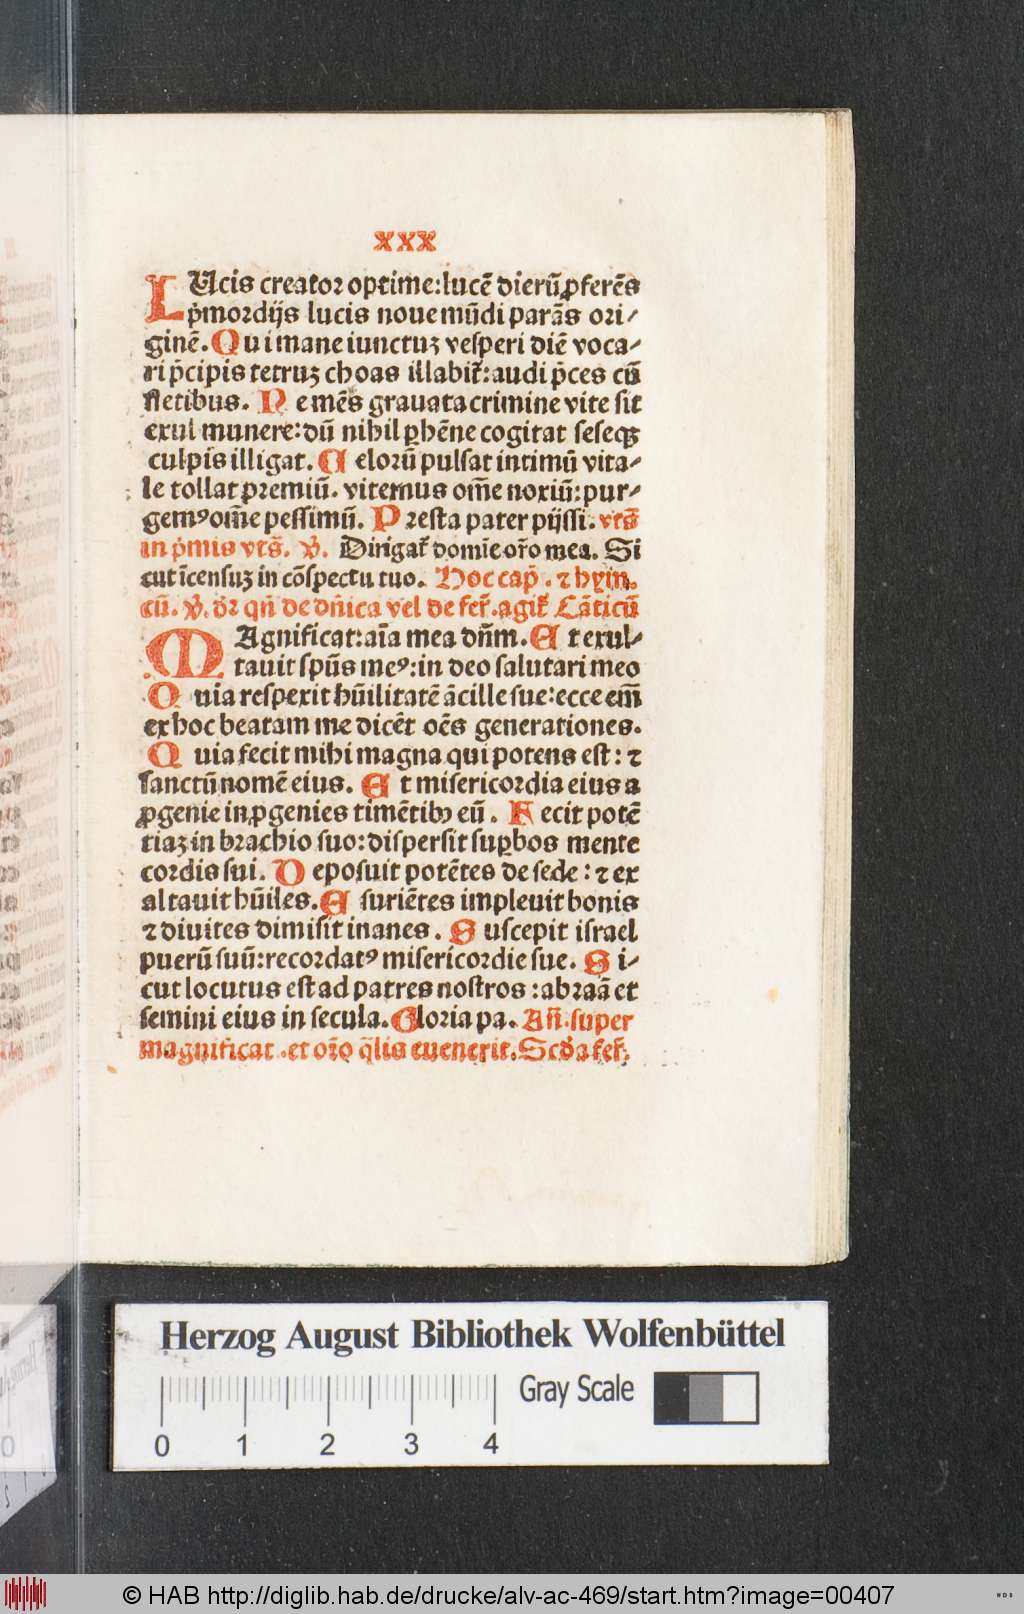 xxx
LUcis creator optime:lucē dierū ꝓferēs
p̄mordijs lucis noue mūdi parās ori-
ginē. Qui mane iunctuꝫ vesperi diē voca-
ri p̄cipis tetruꝫ choas illabit̄:audi p̄ces cū
fletibus. Ne mēs grauata crimine vite sit
exul munere:dū nihil ꝑhēne cogitat seseqꝫ
culpis illigat. Celorū pulsat intimū vita-
le tollat premiū. vitemus om̄e noxiū:pur-
gemꝰ om̄e pessimū. Presta pater pijssi. vts̄
in p̄mis vts̄. v̄. Dirigat̄ domīe or̄o mea. Si
cut īcensuꝫ in cōspectu tuo. Hoc cap̄. ⁊ hym.
cū. v̄. dr̄ qn̄ de dn̄ica vel de fer̄. agit̄ Cāticū
MAgnificat:aīa mea dn̄m. Et exul-
tauit spūs meꝰ:in deo salutari meo
Quia respexit hūilitatē ācille sue:ecce em̄
ex hoc beatam me dicēt oēs generationes.
Quia fecit mihi magna qui potens est: ⁊
sanctū nomē eius. Et misericordia eius a
ꝓgenie in ꝓgenies timētibꝫ eū. Fecit potē
tiaꝫ in brachio suo:dispersit suꝑbos mente
cordis sui. Deposuit potētes de sede: ⁊ ex
altauit hūiles. Esuriētes impleuit bonis
⁊ diuites dimisit inanes. Suscepit israel
puerū suū:recordatꝰ misericordie sue. Si-
cut locutus est ad patres nostros:abraā et
semini eius in secula. Gloria pa. An̄. super
magnificat. et or̄o q̄lis euenerit. Scd̄a fer̄.
Herzog August Bibliothek Wolfenbüttel
Gray Scale
0 1 2 3 4
© HAB http://diglib.hab.de/drucke/alv-ac-469/start.htm?image=00407